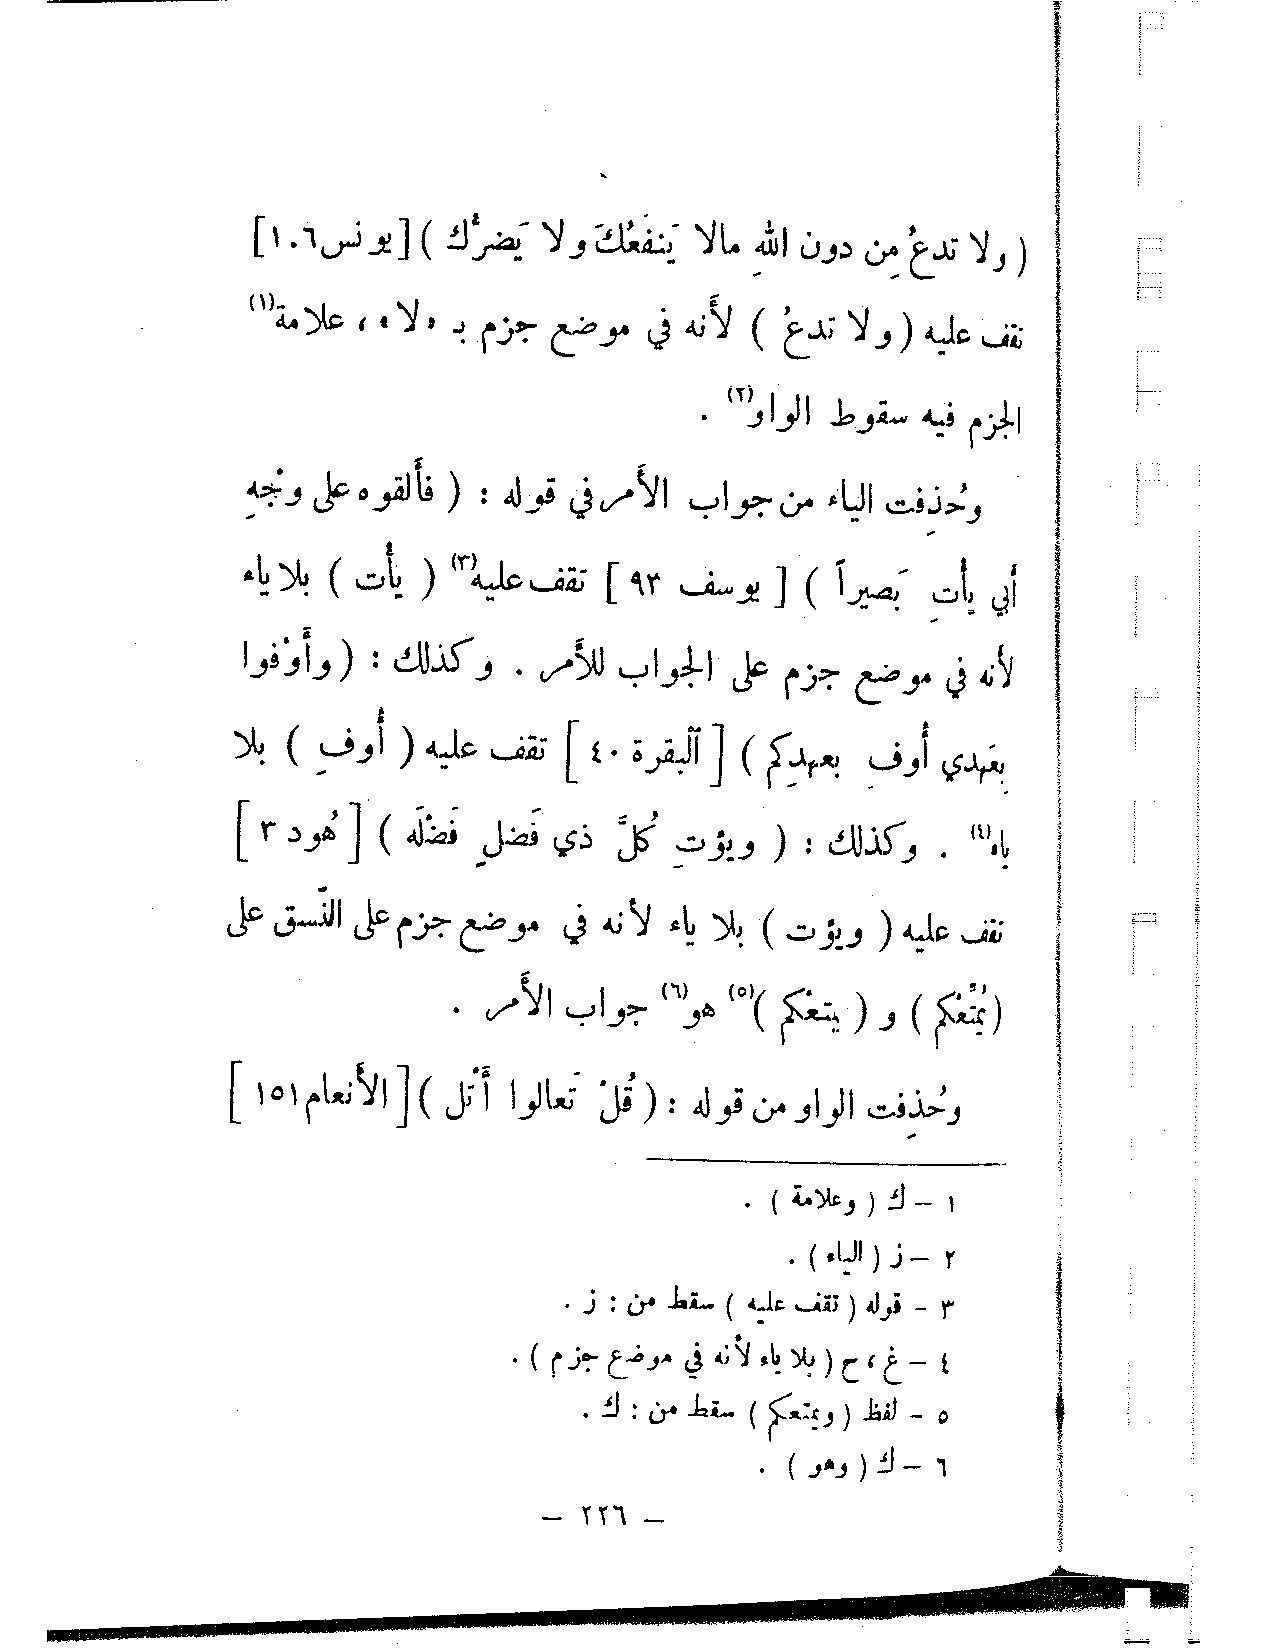 ( ولا تدعُ مِن دون اللهِ مالا يَنفَعُكَ ولا يَضرُّك ) [ يونس ١٠٦ ]
نقف عليه ( ولا تدعُ ) لأنه في موضع جزم بـ «لا» ، علامة(١)
الجزم فيه سقوط الواو(٢) .
وحُذِفت الياء من جواب الأمر في قوله : ( فألقوه على وجْهِ
أبي يأتِ بَصيراً ) [ يوسف ٩٣ ] تقف عليه(٣) ( يأت ) بلا ياء
لأنه في موضع جزم على الجواب للأمر . وكذلك : ( وأَوْفوا
بِعَهدي أُوفِ بعهدِكم ) [ البقرة ٤٠ ] تقف عليه ( أُوفِ ) بلا
ياء(٤) . وكذلك : ( ويؤتِ كُلَّ ذي فَضلٍ فَضْلَه ) [ هُود ٣ ]
نقف عليه ( ويؤت ) بلا ياء لأنه في موضع جزم على النّسق على
( يُمَتِّعْكم ) و ( يمتعْكم )(٥) هو(٦) جواب الأمر .
وحُذِفت الواو من قوله : ( قُلْ تَعالوا أَتْل ) [ الأنعام ١٥١ ]
١ - ك ( وعلامة ) .
٢ - ز ( الياء ) .
٣ - قوله ( تقف عليه ) سقط من : ز .
٤ - غ ، ح ( بلا ياء لأنه في موضع جزم ) .
٥ - لفظ ( ويمتعكم ) سقط من : ك .
٦ - ك ( وهو ) .
- ٢٢٦ -